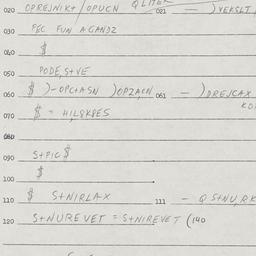 020 OPREJNIKT/OPUCN Q LITER 021 — )VEKSLT
030 FEC FUN AGANDZ
040 $
050 PODE, S+VE
060 $ )-OPC+ASN )OPZACN 061 — )DREJCAX
070 $ = HILSKBES
080
090 S+FIG $
100 $
110 $ S+NIRLAX 111 — Q S+NURK
120 S+NUREVET = S+NIREVET (140